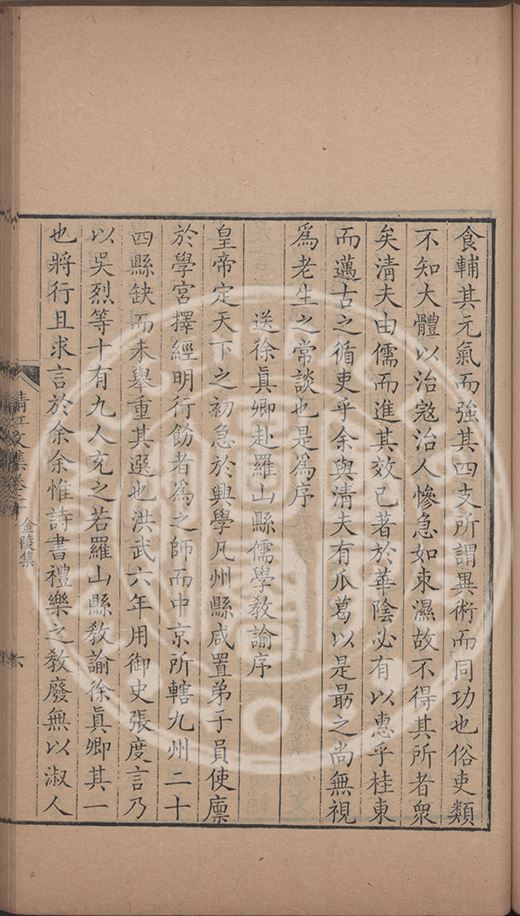 食輔其元氣而強其四支所謂異術而同功也俗吏類
不知大體以治寇治人慘急如束濕故不得其所者眾
矣清夫由儒而進其效已著於華陰必有以惠乎桂東
而邁古之循吏乎余與清夫有瓜葛以是最之尚無視
為老生之常談也是為序
送徐真卿赴羅山縣儒學教諭序
皇帝定天下之初急於興學凡州縣咸置弟子員使廩
於學宮擇經明行飭者為之師而中京所轄九州二十
四縣缺而未舉重其選也洪武六年用御史張度言乃
以吳烈等十有九人充之若羅山縣教諭徐真卿其一
也將行且求言於余余惟詩書禮樂之教廢無以淑人
清江文集卷二十
金陵集